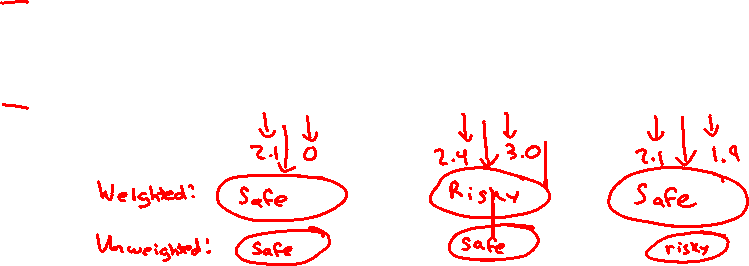 2.1 0 2.4 3.0 2.1 1.9
Weighted: Safe Risky Safe
Unweighted: Safe Safe risky